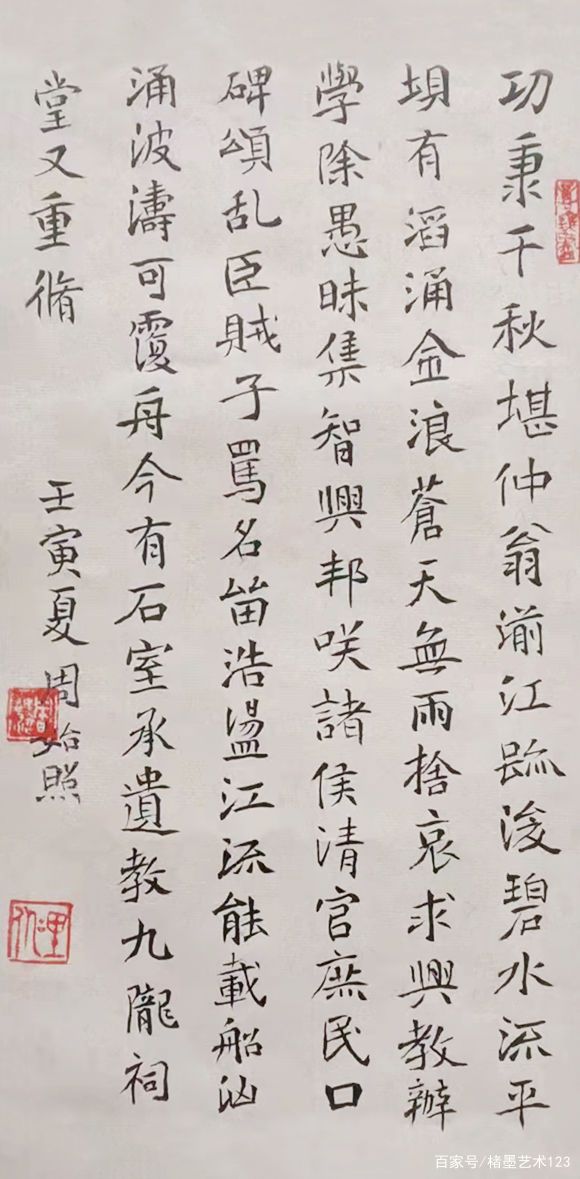 功秉千秋堪仲翁湔江疏浚碧水流平
垻有滔涌金浪蒼天無雨捨哀求興教辦
學除愚昧集智興邦咲諸侯清官庶民口
碑頌乱臣賊子罵名留浩盪江流能載船汹
涌波濤可覆舟今有石室承遺教九隴祠
堂又重脩
壬寅夏周始照
百家号/楮墨艺术123